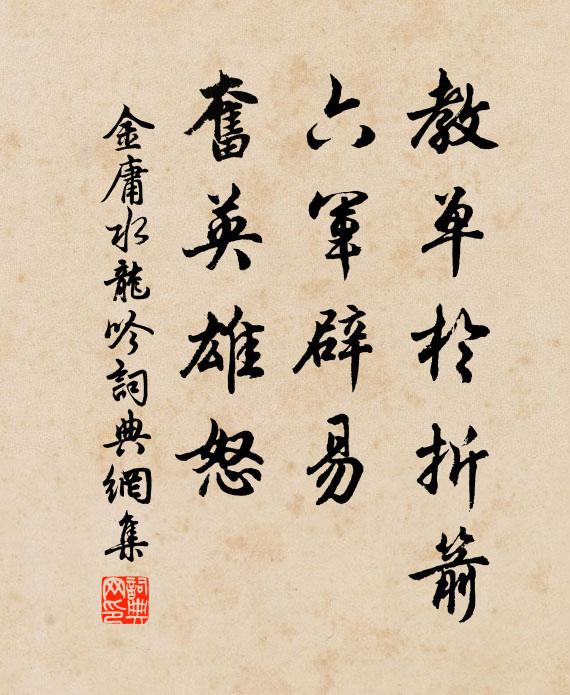 教单於折箭
六軍辟易
奮英雄怒
金庸水龍吟詞典網集
詞典网印